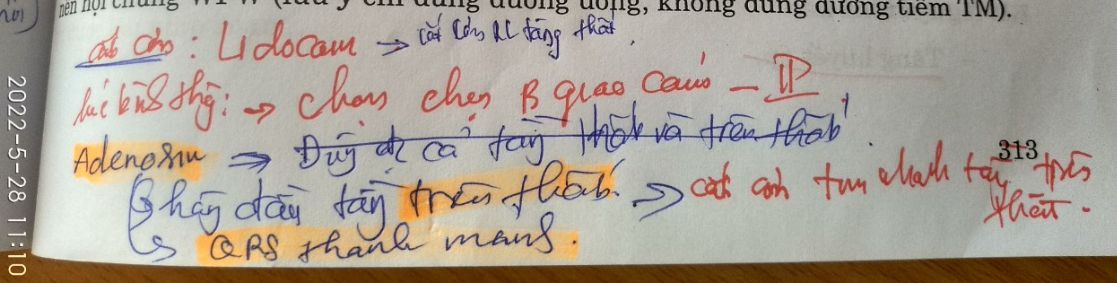 nền hội chứng WPW (lưu ý chỉ dùng đường uống, không dùng đường tiêm TM).
cắt cơn : Lidocain → cắt cơn RL tầng thất.
lúc bình thg: → chẹn chẹn β giao cảm - IP
Adenosin → Dùng đc cả tầng thất và trên thất
313
Phân đầu tầng trên thất. → cắt cơn tim nhanh tầng trên thất.
↳ QRS thanh mảnh.
2022-5-28 11:10